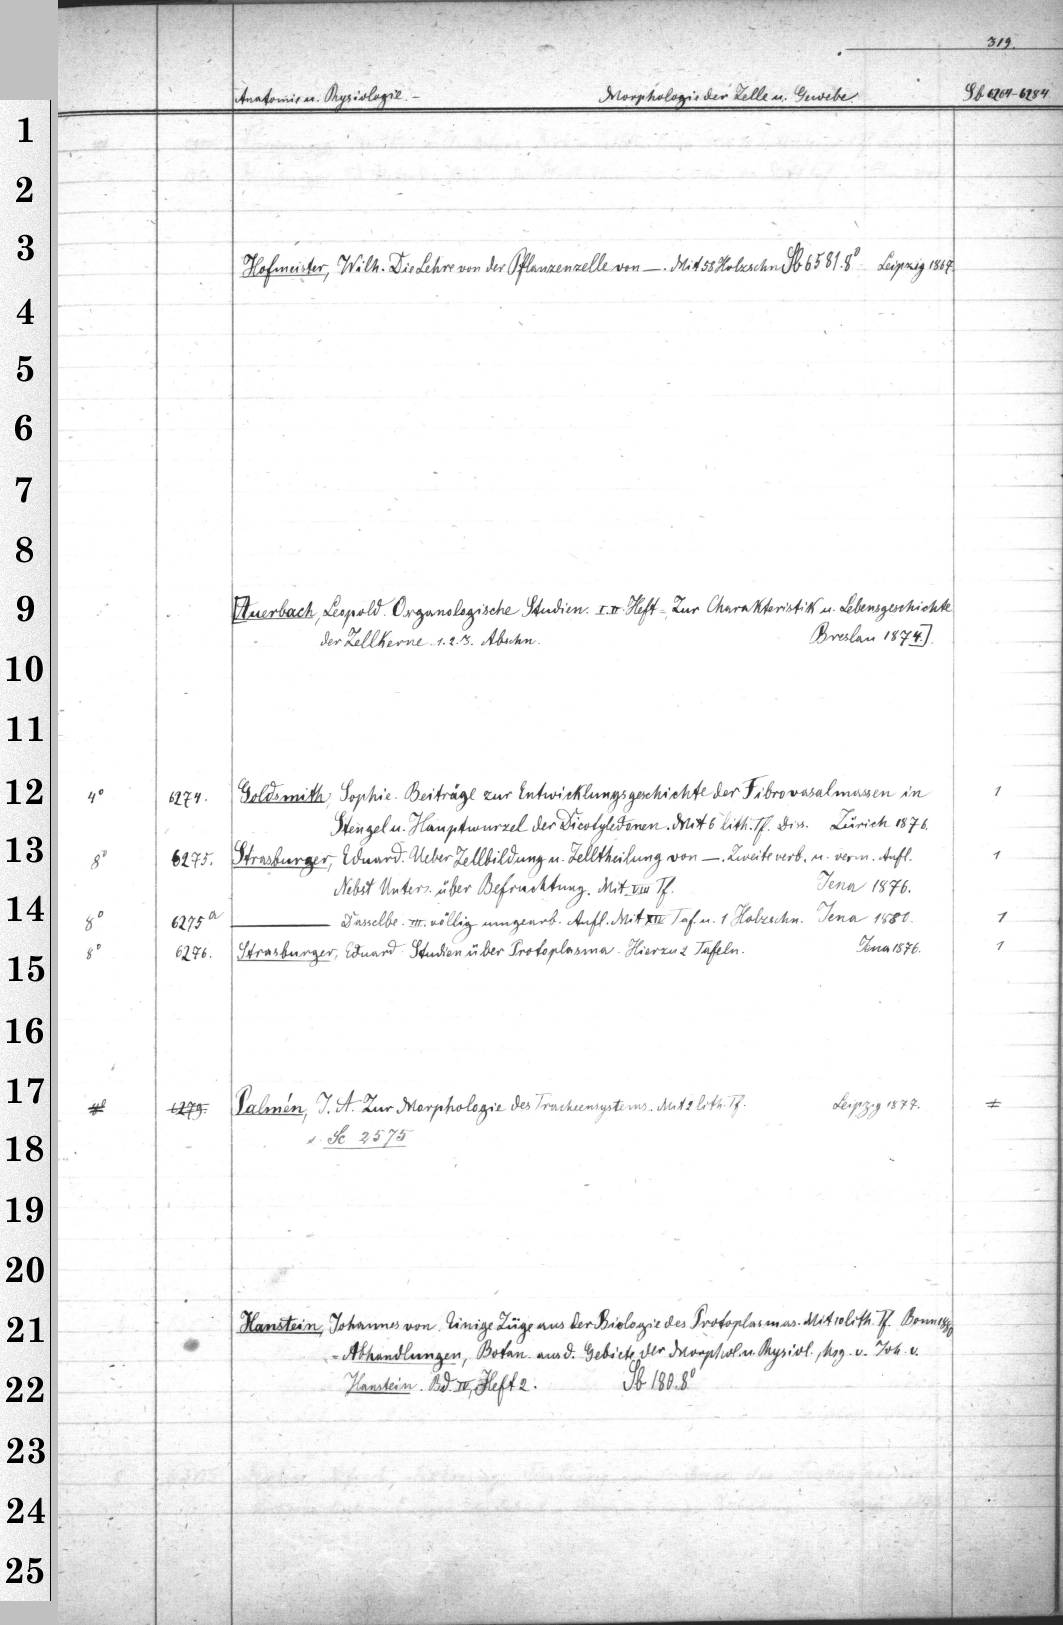 319.
Anatomie u. Physiologie. – Morphologie der Zelle u. Gewebe. Sb 6264-6284
1
2
3
Hofmeister, Wilh. Die Lehre von der Pflanzenzelle von —. Mit 58 Holzschn. Sb 6581.8° Leipzig 1867.
4
5
6
7
8
9
[Auerbach, Leopold. Organologische Studien. I. II. Heft = Zur Charakteristik u. Lebensgeschichte
der Zellkerne. 1. 2. 3. Abschn. Breslau 1874.]
10
11
12
4° 6274. Goldsmith, Sophie. Beiträge zur Entwicklungsgeschichte der Fibrovasalmassen in 1
Stengel u. Hauptwurzel der Dicotyledonen. Mit 6 lith. Tf. Diss. Zürich 1876.
13
8° 6275. Strasburger, Eduard. Ueber Zellbildung u. Zelltheilung von —. Zweite verb. u. verm. Aufl. 1
Nebst Unters. über Befruchtung. Mit VIII Tf. Jena 1876.
14
8° 6275a ——— Dasselbe. III. völlig umgearb. Aufl. Mit XIV Taf. u. 1 Holzschn. Jena 1880. 1
8° 6276. Strasburger, Eduard. Studien über Protoplasma. Hierzu 2 Tafeln. Jena 1876. 1
15
16
17
6279. Palmén, J. A. Zur Morphologie des Tracheensystems. Mit 2 lith. Tf. Leipzig 1877. 1
s. Sc 2575
18
19
20
21
Hanstein, Johannes von. Einige Züge aus der Biologie des Protoplasmas. Mit 10 lith. Tf. Bonn 1880
= Abhandlungen, Botan. aus d. Gebiete der Morphol. u. Physiol., hsg. v. Joh. v.
22
Hanstein. Bd. IV, Heft 2. Sb 180.8°
23
24
25